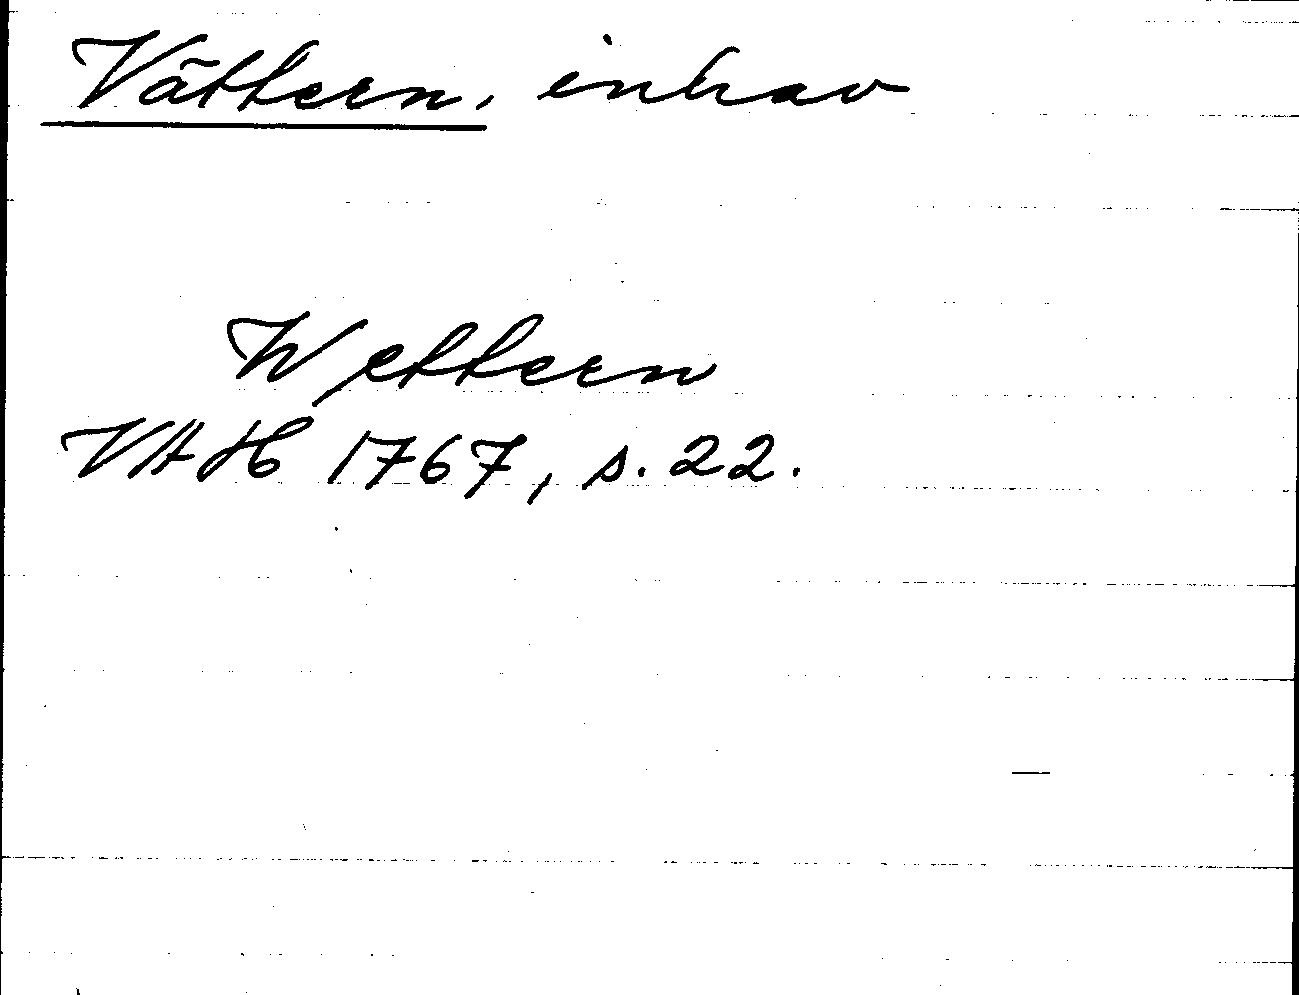 Vättern, inhav
Wettern
VAH 1767, s. 22.